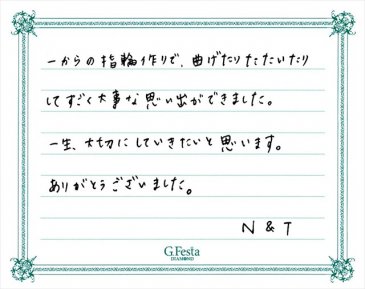 一からの指輪作りで、曲げたりたたいたり
してすごく大事な思い出ができました。
一生、大切にしていきたいと思います。
ありがとうございました。
N & T
G.Festa
DIAMOND